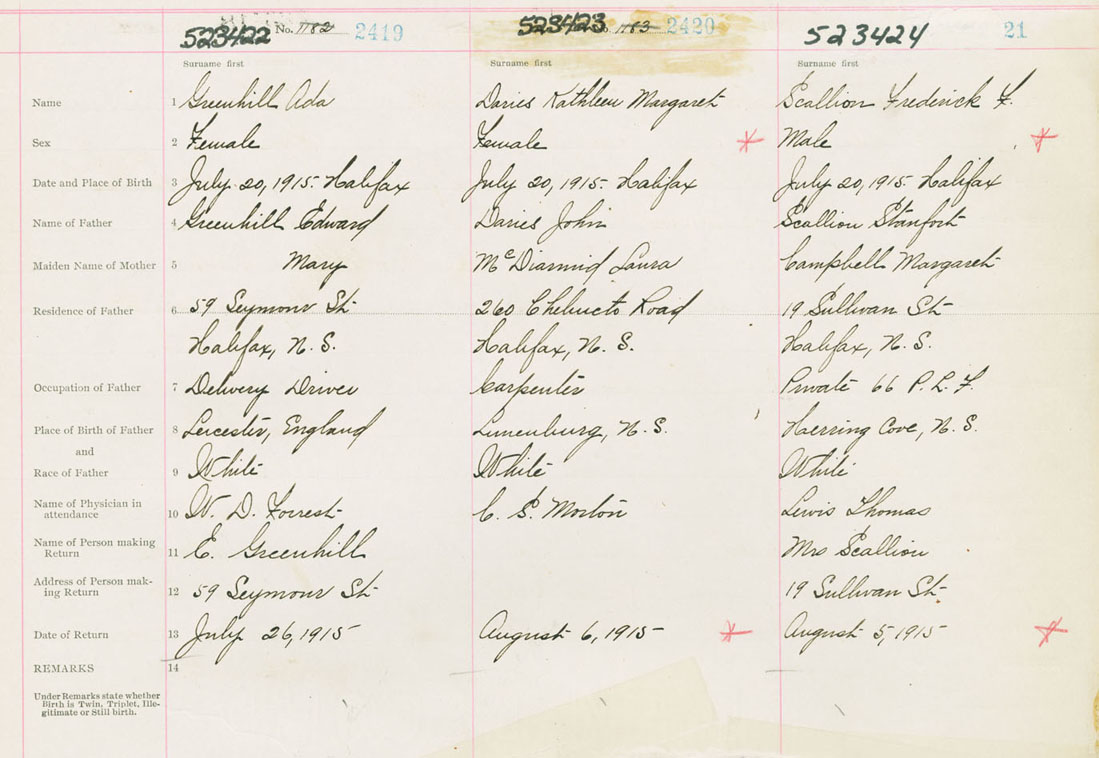 523422 No. 1182 2419 523423 1183 2420 523424 21
Surname first Surname first Surname first
Name 1 Greenhill Ada Davies Kathleen Margaret Scallion Frederick F.
Sex 2 Female Female Male
Date and Place of Birth 3 July 20, 1915. Halifax July 20, 1915. Halifax July 20, 1915. Halifax
Name of Father 4 Greenhill Edward Davies John Scallion Stanfort
Maiden Name of Mother 5 Mary McDiarmid Laura Campbell Margaret
Residence of Father 6 59 Seymour St 260 Chebucto Road 19 Sullivan St
Halifax, N.S. Halifax, N.S. Halifax, N.S.
Occupation of Father 7 Delivery Driver Carpenter Private 66 P. L. F.
Place of Birth of Father 8 Leicester, England Lunenburg, N.S. Haerring Cove, N.S.
and
Race of Father 9 White White White
Name of Physician in
attendance 10 W. D. Forrest C. S. Morton Lewis Thomas
Name of Person making
Return 11 E. Greenhill Mrs Scallion
Address of Person mak-
ing Return 12 59 Seymour St 19 Sullivan St
Date of Return 13 July 26, 1915 August 6, 1915 August 5, 1915
REMARKS 14
Under Remarks state whether
Birth is Twin, Triplet, Ille-
gitimate or Still birth.